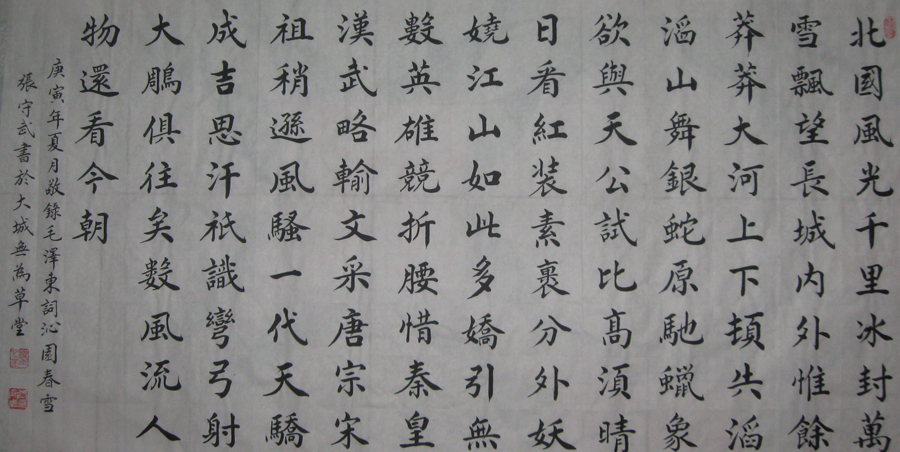 北國風光千里冰封萬
雪飄望長城内外惟餘
莽莽大河上下頓失滔
滔山舞銀蛇原馳蠟象
欲與天公試比高須晴
日看紅装素裹分外妖
嬈江山如此多嬌引無
數英雄競折腰惜秦皇
漢武略輸文采唐宗宋
祖稍遜風騷一代天驕
成吉思汗祇識彎弓射
大鵰俱往矣數風流人
物還看今朝
庚寅年夏月敬錄毛澤東詞沁園春雪
張守武書於大城無為草堂